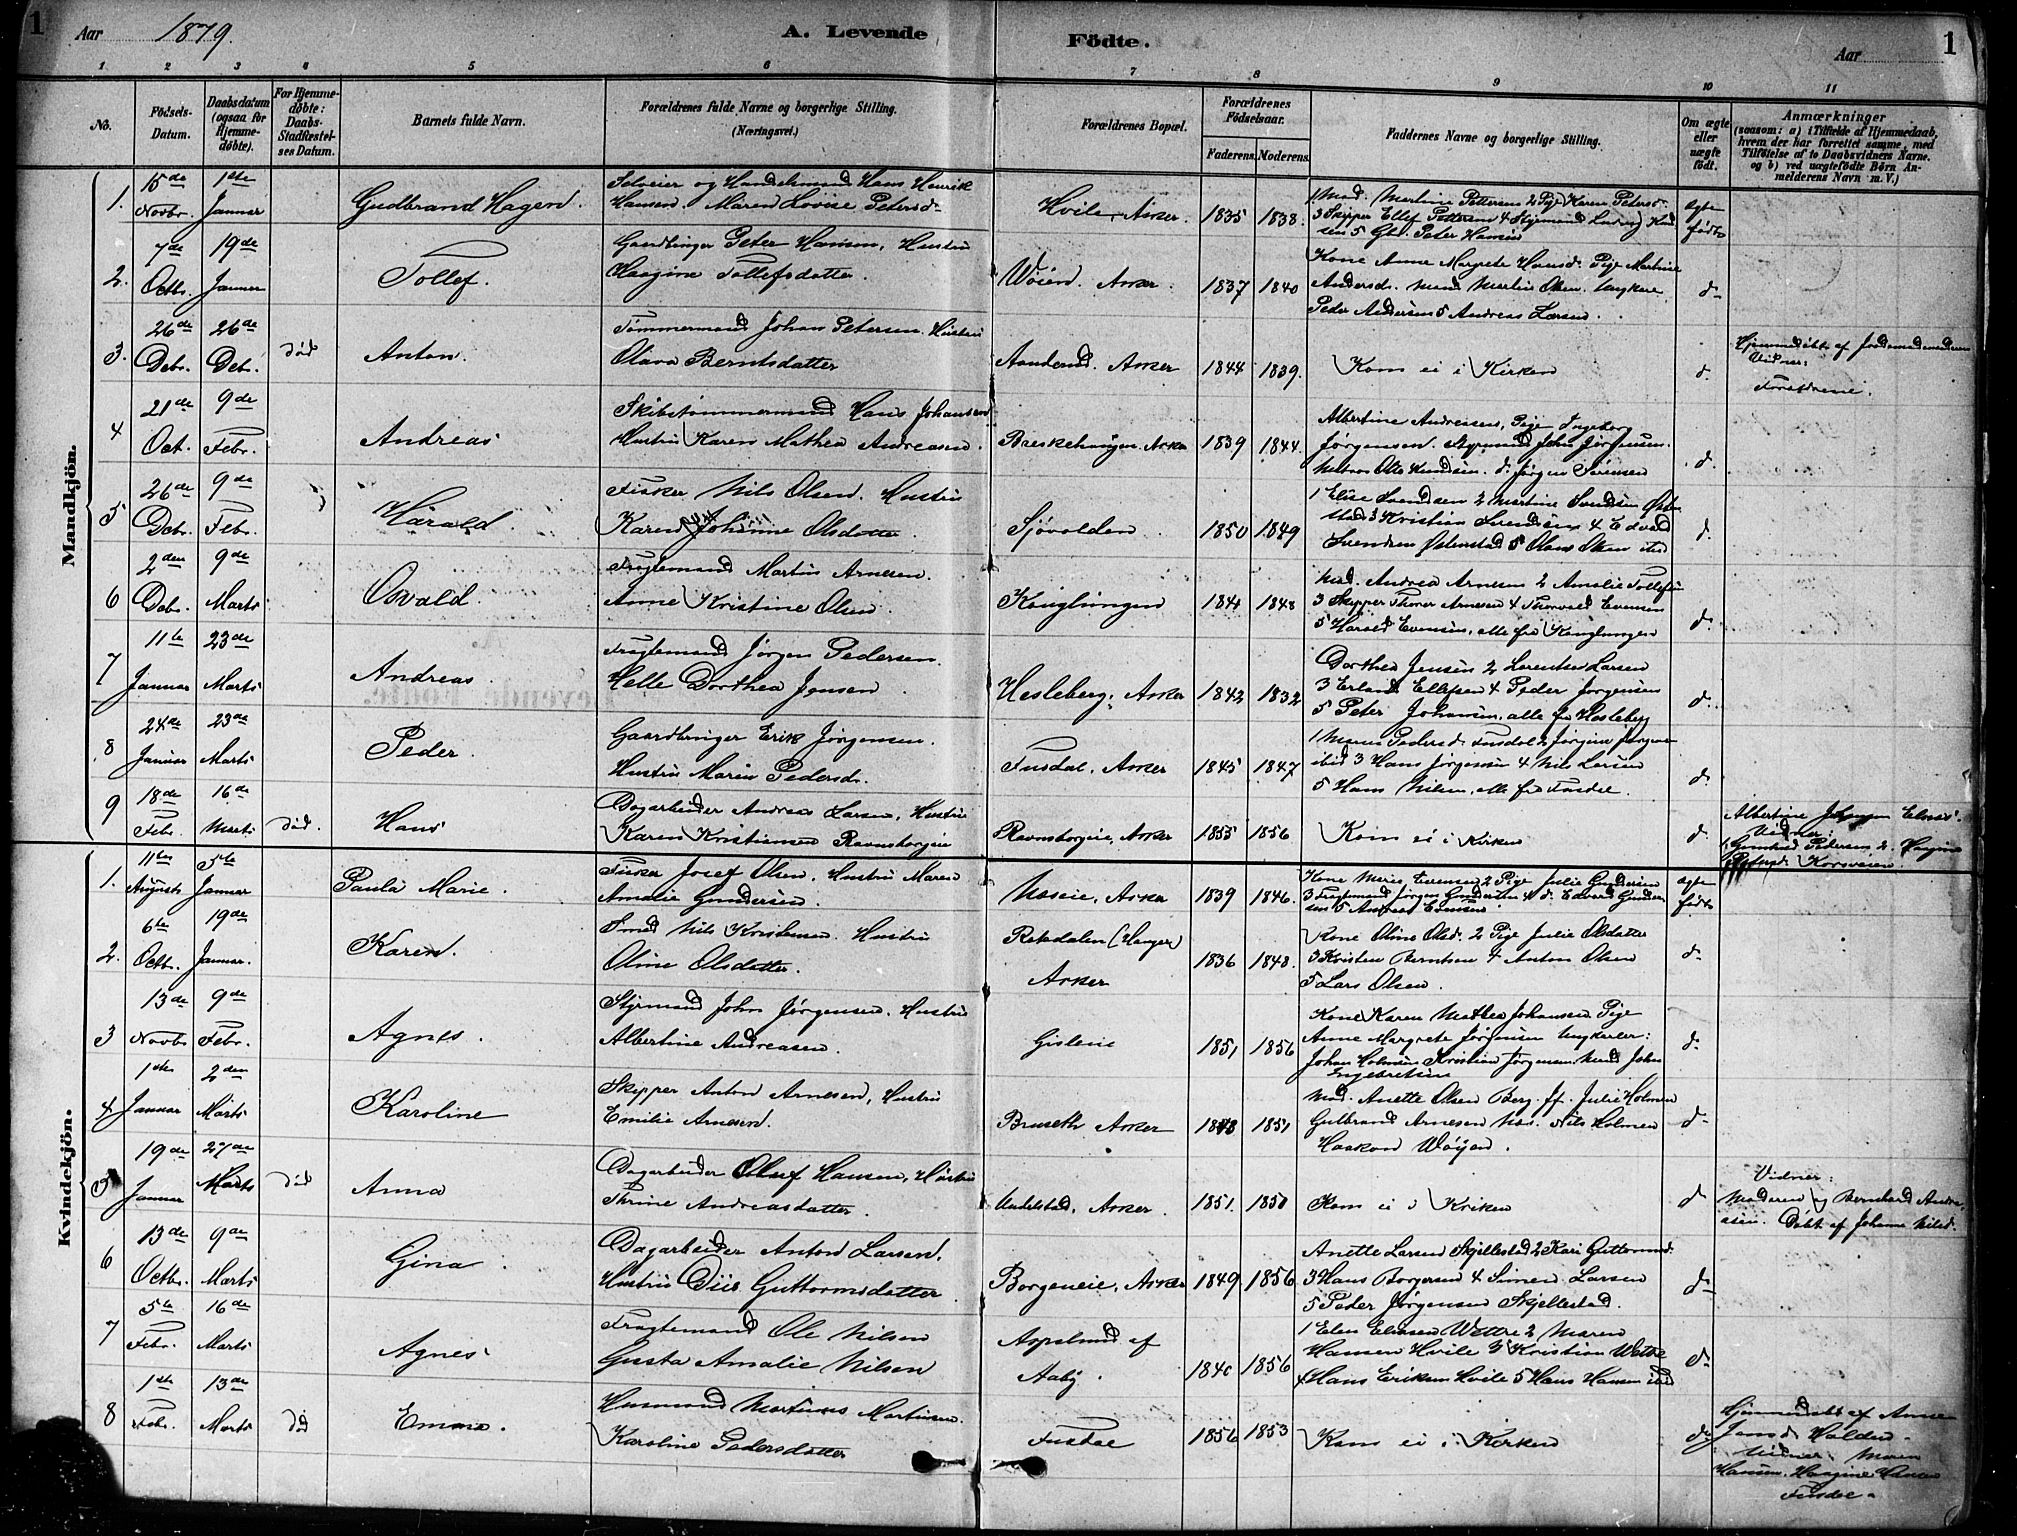 1
Aar 1879.
A. Levende Födte.
Aar
1
1 2 3 4 5 6 7 8 9 10 11
No.
Födsels-Datum.
Daabsdatum (ogsaa for Hjemme-döbte).
For Hjemme-döbte: Daabs-Stadfæstel-ses Datum.
Barnets fulde Navn.
Forældrenes fulde Navne og borgerlige Stilling. (Næringsvei.)
Forældrenes Bopæl.
Forældrenes Födselsaar.
Faderens. Moderens.
Faddernes Navne og borgerlige Stilling.
Om ægte eller uægte födt.
Anmærkninger
(saasom: a) i Tilfælde af Hjemmedaab, hvem der har forrettet samme, med Tilföielse af to Daabsvidners Navne. og b) ved uægtefödte Börn An-melderens Navn m. V.)
Mandkjön.
1. 15de Novbr. 1ste Januar Gudbrand Hagen.
Selveier og Handelsmand Hans Henrik
Hansen. Maren Lovise Petersd.
Hvile, Asker. 1835 1838.
1 Mad. Martine Pettersen 2 Pige Karen Petersd.
3 Skipper Ellef Pettersen 4 Styrmand Ludvig
5 Gbr. Peter Hansen
ægte födt
2. 7de Octbr. 19de Januar Tollef.
Gaardbruger Peter Hansen, Hustru
Haagine Tollefsdatter.
Wøien. Asker. 1837 1840
Kone Anne Margrete Hansd. Pige Martine
Andersd. Mand Martin Olsen. Ungkarle
Peder Andersen 5 Andreas Larsen.
do
3. 26de Debr. 26de Debr. död Anton.
Tømmermand Johan Petersen. Hustru
Olava Berntsdatter
Asker 1844 1839.
Kom ei i Kirken
d.
Hjemmedöbt af Jordemoderen
Vidner:
Forældrene.
4 21de Oct. 9de Febr. Andreas
Skibstømmermand Hans Johansen
Hustru Karen Mathea Andreasen.
Asker 1839 1844.
Albertine Andreasen, Pige Ingeborg
Jørgensen. Styrmand John Jørgensen.
Matros Otto Knudsen. d. Jørgen Sørensen
d.
5 26de Debr. 9de Febr. Harald.
Fisker Nils Olsen. Hustru
Karen Johanne Olsdatter.
Sjøvolden 1850 1849
1 Elise Svendsen 2 Martine Svendsen Østen-
stad 3 Kristian Svendsen 4 Edvard
Svendsen Østenstad 5 Olaus Olsen ibid
d.
6 2den Debr. 9de Marts Osvald.
Fragtemand Martin Arnesen.
Anne Kristine Olsen.
Konglungen 1841 1848
Mad. Andrea Arnesen 2 Amalie Tollefsen
3 Skipper Thorer Arnesen 4 Thorvald Evensen
5 Harald Evensen, alle fra Konglungen
d.
7 11te Januar 23de Marts Andreas.
Fragtemand Jørgen Pedersen.
Helle Dorthea Jensen.
Hesleberg, Asker 1842 1832
Dorthea Jensen 2 Laurentse Larsen
3 Erland Ellefsen 4 Peder Jørgensen
5 Peter Johansen, alle fra Hesleberg
d.
8 24de Januar 23de Marts Peder.
Gaardbruger Erik Jørgensen.
Hustru Maren Pedersdr.
Fusdal, Asker 1845 1847
1 Maren Pedersd. Fusdal 2 Jørgine Jørgens
ibid 3 Hans Jørgensen 4 Nils Larsen
5 Hans Nilsen, alle fra Fusdal.
d.
9 18de Febr. 16de Marts död. Hans
Dagarbeider Andreas Larsen, Hustru
Karen Kristiansen Ravnsborgeie
Ravnsborgeie, Asker 1855 1856
Kom ei i Kirken
d.
Albertine
Vidner:
Pedersen 2. Haagine
Korsveien.
Kvindekjön.
1. 11te Augusts 5te Januar Paula Marie.
Fisker Josef Olsen. Hustru Maren
Amalie Gundersen.
Næseie, Asker 1839 1846.
Kone Marie Evensen 2 Pige Julie Gundersen
3 Fragtemand Jørgen Gundersen 4 d. Edvard Gunder-
sen 5 Andreas Evensen
ægte födt
2. 6te Octbr. 19de Januar. Karen.
Smed Nils Kristensen. Hustru
Oline Olsdatter.
(Hanger)
Asker 1836 1848.
Kone Oline Olsd. 2 Pige Julie Olsdatter
3 Kristen Berntsen 4 Anton Olsen
5 Lars Olsen.
d.
3 13de Novbr 9de Febr. Agnes.
Styrmand John Jørgensen. Hustru
Albertine Andreasen.
Gisleeie 1851 1856
Kone Karen Mathea Johansen Pige
Anne Margrete Jørgensen Ungkarler:
Johan Holmsen Kristian Jørgensen. Mand John
Engebretsen
d.
4 1ste Januar 2den Marts Karoline
Skipper Anton Arnesen, Hustru
Emilie Arnesen.
Bruseth Asker 1848 1851
Mad. Anette Olsen Berg. Julie Holmen
Gulbrand Arnesen Næs. Nils Holmen
Haakon Wøyen.
d.
5 19de Januar 27de Marts död Anna
Dagarbeider Oluf Hansen, Hustru
Thrine Andreasdatter.
Undelstad, Asker. 1851. 1850
Kom ei i Kirken
d
Vidner:
Moderen og Bernhard Andre-
asen. Döbt af Johanne Nilsd.
6 13de Octbr. 9de Marts Gina.
Dagarbeider Anton Larsen.
Hustru Diis Guttormsdatter.
Borgeneie, Asker 1849 1856
Anette Larsen Skjellestad 2 Kari Guttormsd.
3 Hans Borgersen 4 Simen Larsen
5 Peder Jørgensen Skjellestad.
d.
7 5te Febr. 16de Marts Agnes
Fragtemand Ole Nilsen
Gusta Amalie Nilsen
Aspelund af
Aaby. 1840 1856
1 Elen Eliasen Wettre 2 Maren
Hansen Hvile 3 Kristian Wettre
4 Hans Eriksen Hvile 5 Hans Hansen ibid
d.
8 1ste Febr. 13de Marts död Emma.
Husmand Martinus Martinsen.
Karoline Pedersdatter
Fusdal 1856 1853
Kom ei i Kirken
d.
Hjemmedöbt af Anne
Jansd. Halden.
Vidner: Maren
Hansen. Haagine Hansen
Fusdal.